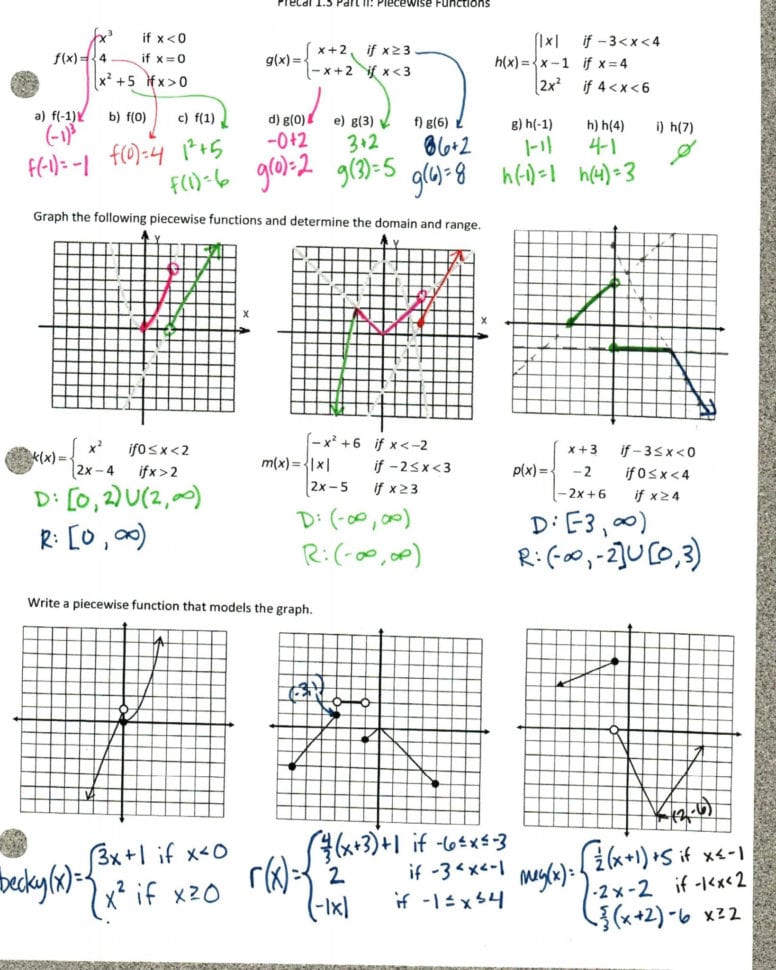 Precal 1.3 Part II: Piecewise Functions
f(x)= { x³ if x<0
4 if x=0
x²+5 if x>0
g(x)= { x+2 if x≥3
−x+2 if x<3
h(x)= { |x| if −3<x<4
x−1 if x=4
2x² if 4<x<6
a) f(-1) b) f(0) c) f(1) d) g(0) e) g(3) f) g(6) g) h(-1) h) h(4) i) h(7)
(-1)³ 1²+5 -0+2 3+2 6+2 |-1| 4-1 ∅
f(-1)=-1 f(0)=4 f(1)=6 g(0)=2 g(3)=5 g(6)=8 h(-1)=1 h(4)=3
Graph the following piecewise functions and determine the domain and range.
Y
X
Y
X
k(x)= { x² if 0≤x<2
2x−4 if x>2
D: [0,2)U(2,∞)
R: [0,∞)
m(x)= { −x²+6 if x<−2
|x| if −2≤x<3
2x−5 if x≥3
D: (-∞,∞)
R: (-∞,∞)
p(x)= { x+3 if −3≤x<0
−2 if 0≤x<4
−2x+6 if x≥4
D: [-3,∞)
R: (-∞,-2]U[0,3)
Write a piecewise function that models the graph.
(-3,1)
(2,-6)
becky(x)= { 3x+1 if x<0
x² if x≥0
r(x)= { 4/3(x+3)+1 if -6≤x≤-3
2 if -3<x<-1
-|x| if -1≤x≤4
meg(x)= { 1/2(x+1)+5 if x≤-1
-2x-2 if -1<x<2
5/3(x+2)-6 x≥2